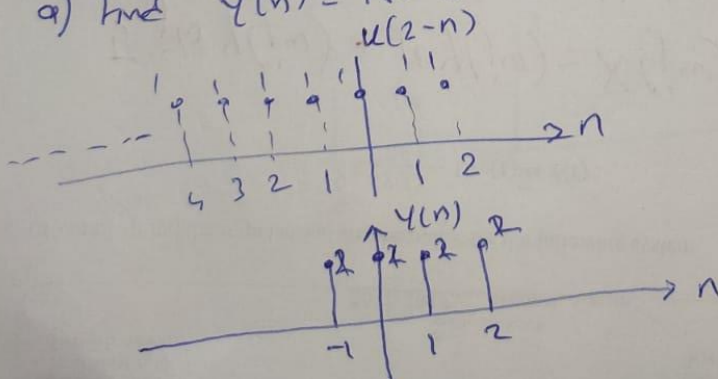 a) find Y(n) =
u(2-n)
1 1 1 1 1 1 1
n
4 3 2 1 1 2
Y(n)
2 2 2 2
n
-1 1 2